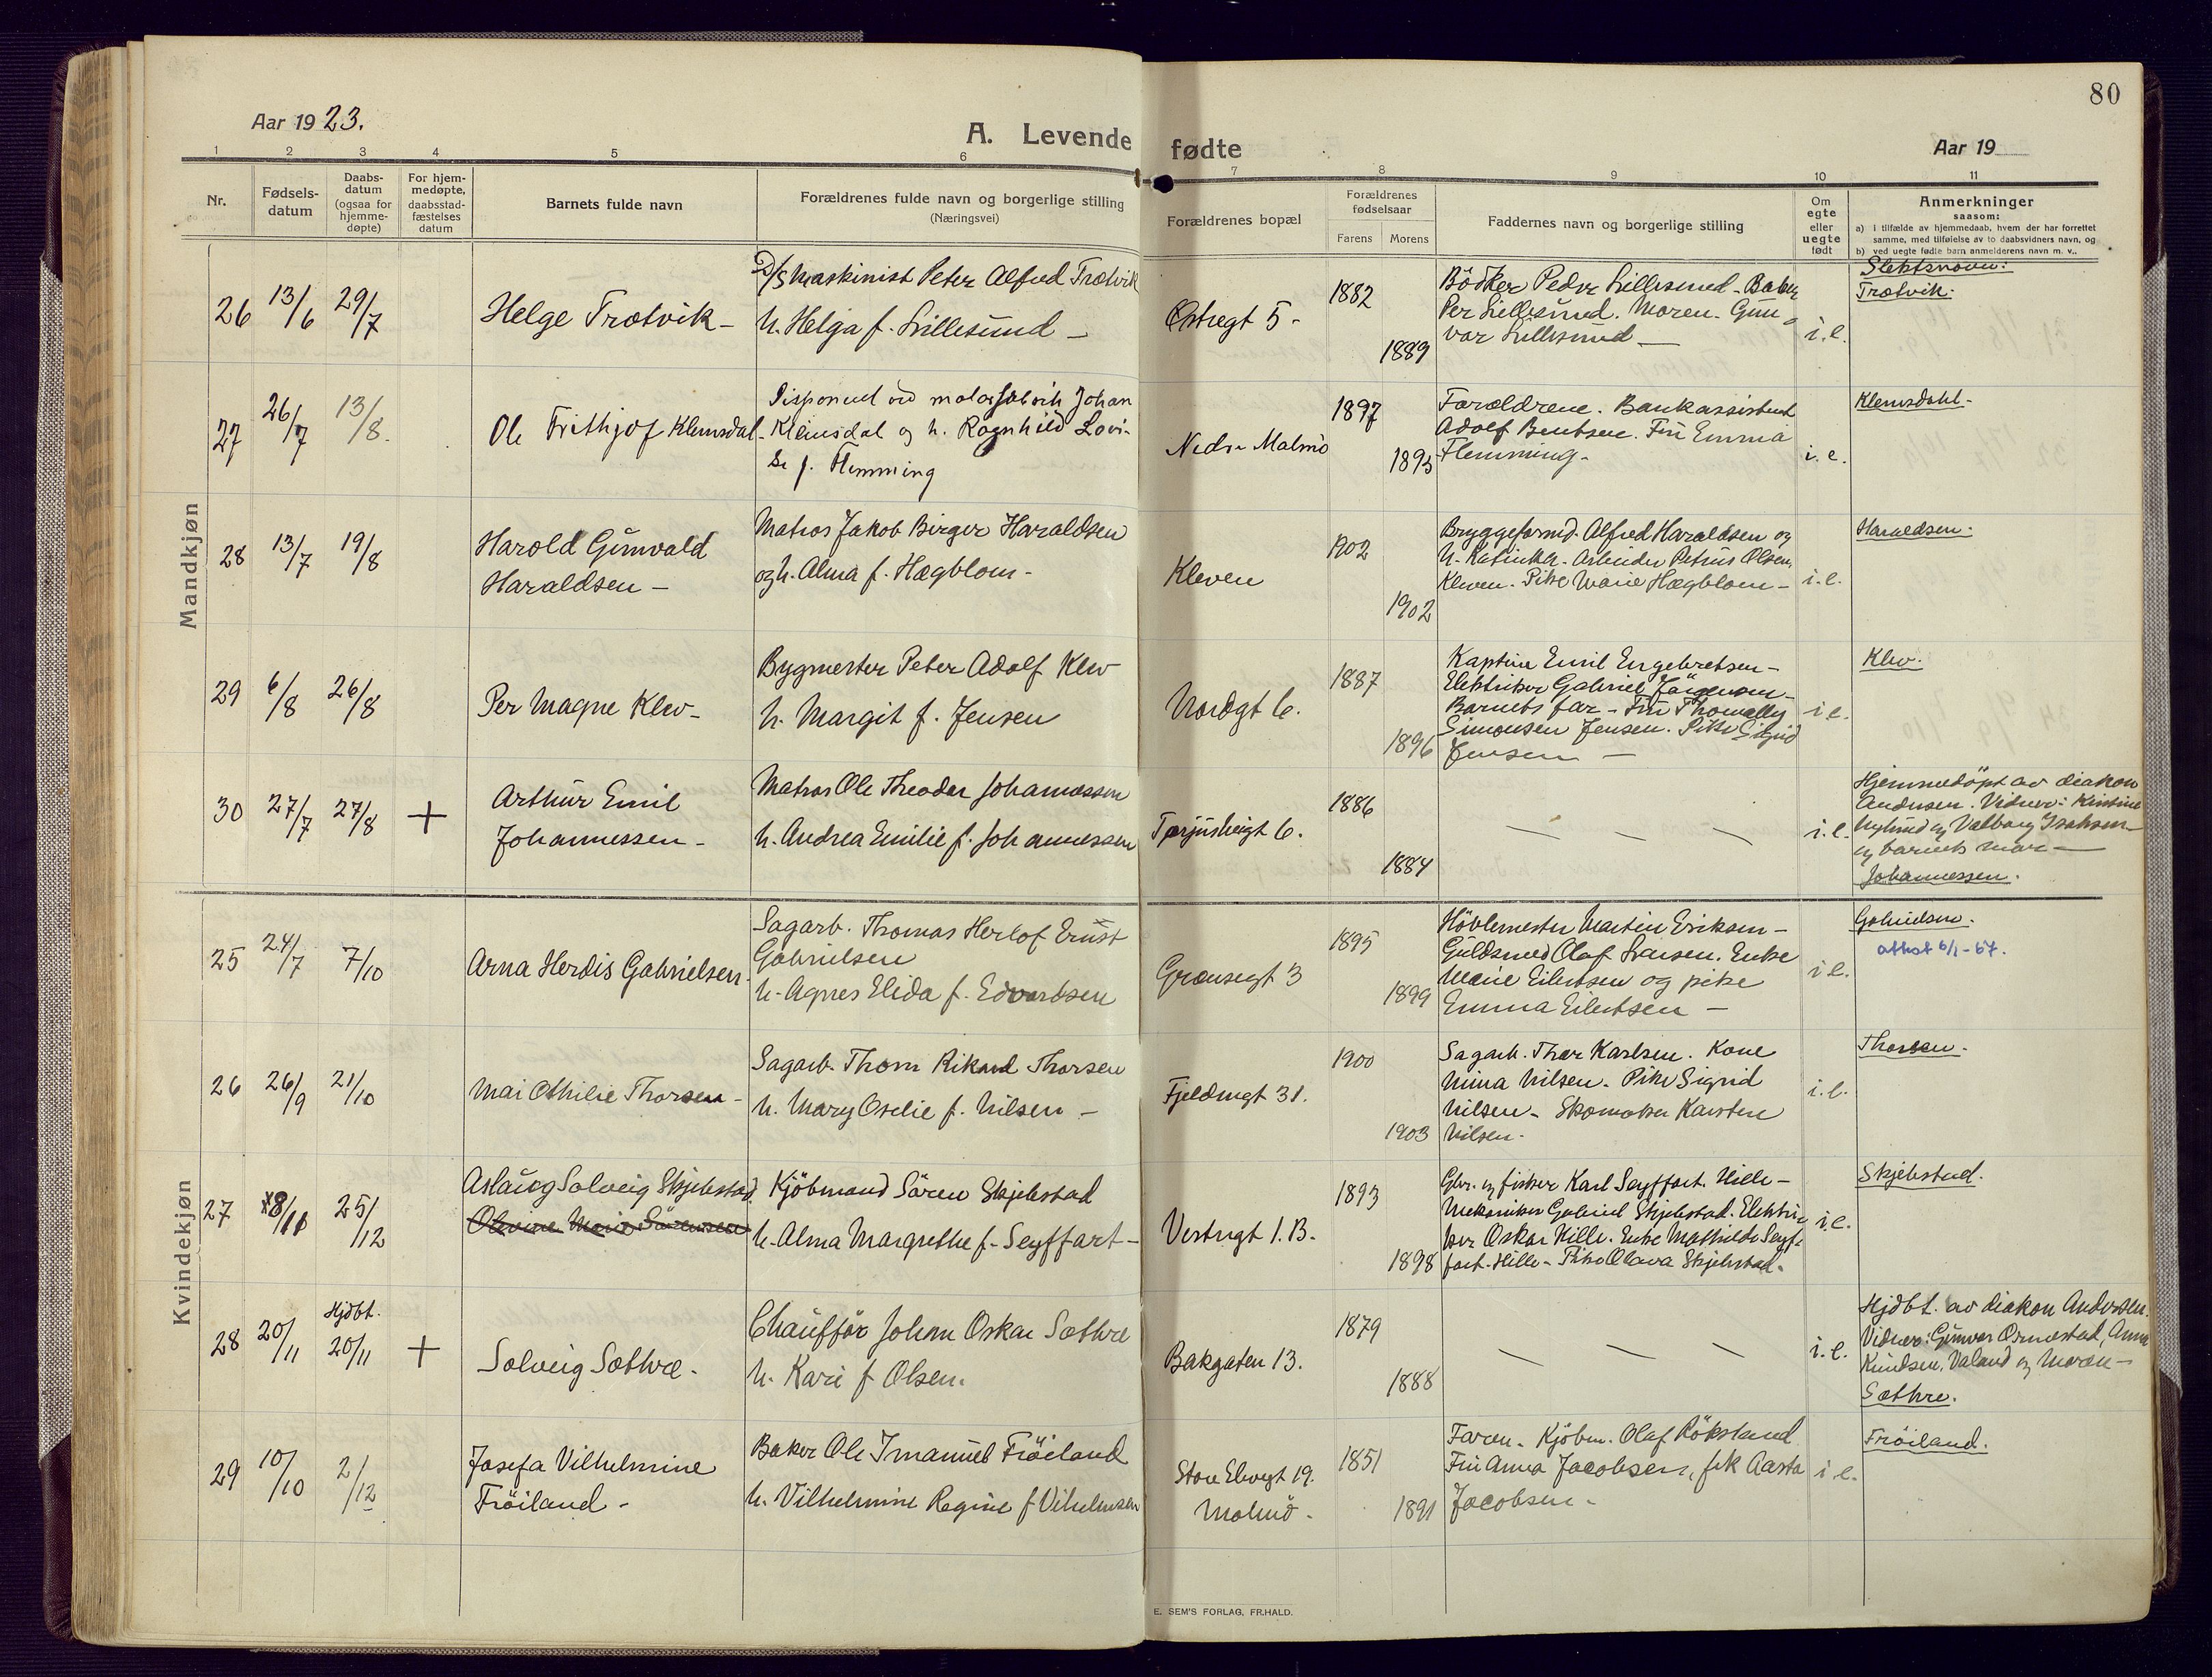 80
Aar 1923.
A. Levende fødte
Aar 19
1 2 3 4 5 6 7 8 9 10 11
Nr.
Fødsels-
datum
Daabs-
datum
(ogsaa for
hjemme-
døpte)
For hjem-
medøpte,
daabsstad-
fæstelses
datum
Barnets fulde navn
Forældrenes fulde navn og borgerlige stilling
(Næringsvei)
Forældrenes bopæl
Forældrenes
fødselsaar
Farens Morens
Faddernes navn og borgerlige stilling
Om
egte
eller
uegte
født
Anmerkninger
saasom:
a) i tilfælde av hjemmedaab, hvem der har forrettet
samme, med tilføielse av to daabsvidners navn, og
b) ved uegte fødte barn anmelderens navn m. v..
Mandkjøn
26 13/6 29/7
Helge Trætvik -
D/S Maskinist Peter Alfred Trætvik
h. Helga f. Lillesund -
Østregt 5 -
1882
1889
Bödker Peder Lillesund - Baker
Per Lillesund. Moren. Gun-
vor Lillesund -
i. e.
Slektsnavn:
Trætvik.
27 26/7 13/8.
Ole Frithjof Klemsdal -
Disponent ved motorfabrik Johan
Klemsdal og h. Ragnhild Lovi-
se f. Flemming
Nedr. Malmö
1897
1893
Forældrene. Bankassistent
Adolf Bentsen. Fru Emma
Flemming -
i. e.
Klemsdahl -
28 13/7 19/8
Harold Gunvald
Haraldsen -
Matros Jakob Birger Haraldsen
og h. Alma f. Hægblom -
Kleven
1902
1902
Bryggeformd. Alfred Haraldsen og
h. Katinka. Arbeider Petrus Olsen,
Kleven. Pike Marie Hægblom -
i. e.
Haraldsen.
29 6/8 26/8
Per Magne Klev -
Bygmester Peter Adolf Klev
h. Margit f. Jensen
Nordgt 6.
1887
1896
Kaptein Emil Engebretsen -
Elektriker Gabriel Jörgensen -
Barnets far - Fru Thomelly
Simonsen Jensen. Pike Sigrid
Jensen -
i e.
Klev.
30 27/7 27/8 +
Arthur Emil
Johannessen -
Matros Ole Theodor Johannessen
h. Andrea Emilie f. Johannessen
Torjusheigt 6.
1886
1884
i. e.
Hjemmedöpt av diakon
Andersen. Vidner: Kirstine
Nylund og Valborg Isaksen
og barnets mor -
Johannessen.
Kvindekjøn
25 24/7 7/10
Arna Herdis Gabrielsen
Sagarb. Thomas Herlof Ernst
Gabrielsen
h. Agnes Elida f. Edvartsen
Grænsegt 3
1895
1899
Hövlemester Martin Eriksen -
Guldsmed Olaf Larsen. Enke
Marie Eilertsen og pike
Emma Eilertsen -
i e.
Gabrielsen.
attest 6/1-67.
26 26/9 21/10
Mai Othilie Thorsen -
Sagarb. Thom Rikard Thorsen
h. Mary Oselie f. Nilsen -
Fjeldmgt 31.
1900
1903
Sagarb. Thor Karlsen. Kone
Mina Nilsen. Pike Sigrid
Nilsen - Skomaker Karsten
Nilsen.
i. e.
Thorsen -
27 8/11 25/12
Aslaug Solveig Skjebstad.
Olevine Marie Sörensen
Kjöbmand Sören Skjebstad
h. Alma Margrethe f. Seyffart -
Vestregt 1. B.
1893
1898
Gbr. og fisker Karl Seyffart. Hille -
Mekaniker Gabriel Skjebstad. Elektri-
ker Oskar Hille. Enke Mathilde Seyf-
fart. Hille - Pike Olava Skjebstad.
i. e.
Skjebstad.
28 20/11 Hjdbt. 20/11 +
Solveig Sæthre -
Chaufför Johan Oskar Sæthre
h. Kari f Olsen.
Bakgaten 13.
1879
1888
i. e.
Hjdbt. av diakon Andersen.
Vidner: Gunvor Ormestad, Anna
Knudsen, Valand og Moren -
Sæthre.
29 10/10 2/12
Josefa Vilhelmine
Fröiland -
Baker Ole Imanuel Fröiland
h. Vilhelmine Regine f Vilhelmsen
Store Elvegt 19.
Malmö -
1851
1891
Faren. Kjöbm. Olaf Rökstand
Fru Anna Jacobsen, frk Aasta
Jacobsen -
i e.
Fröiland.
E. SEM'S FORLAG, FR.HALD.